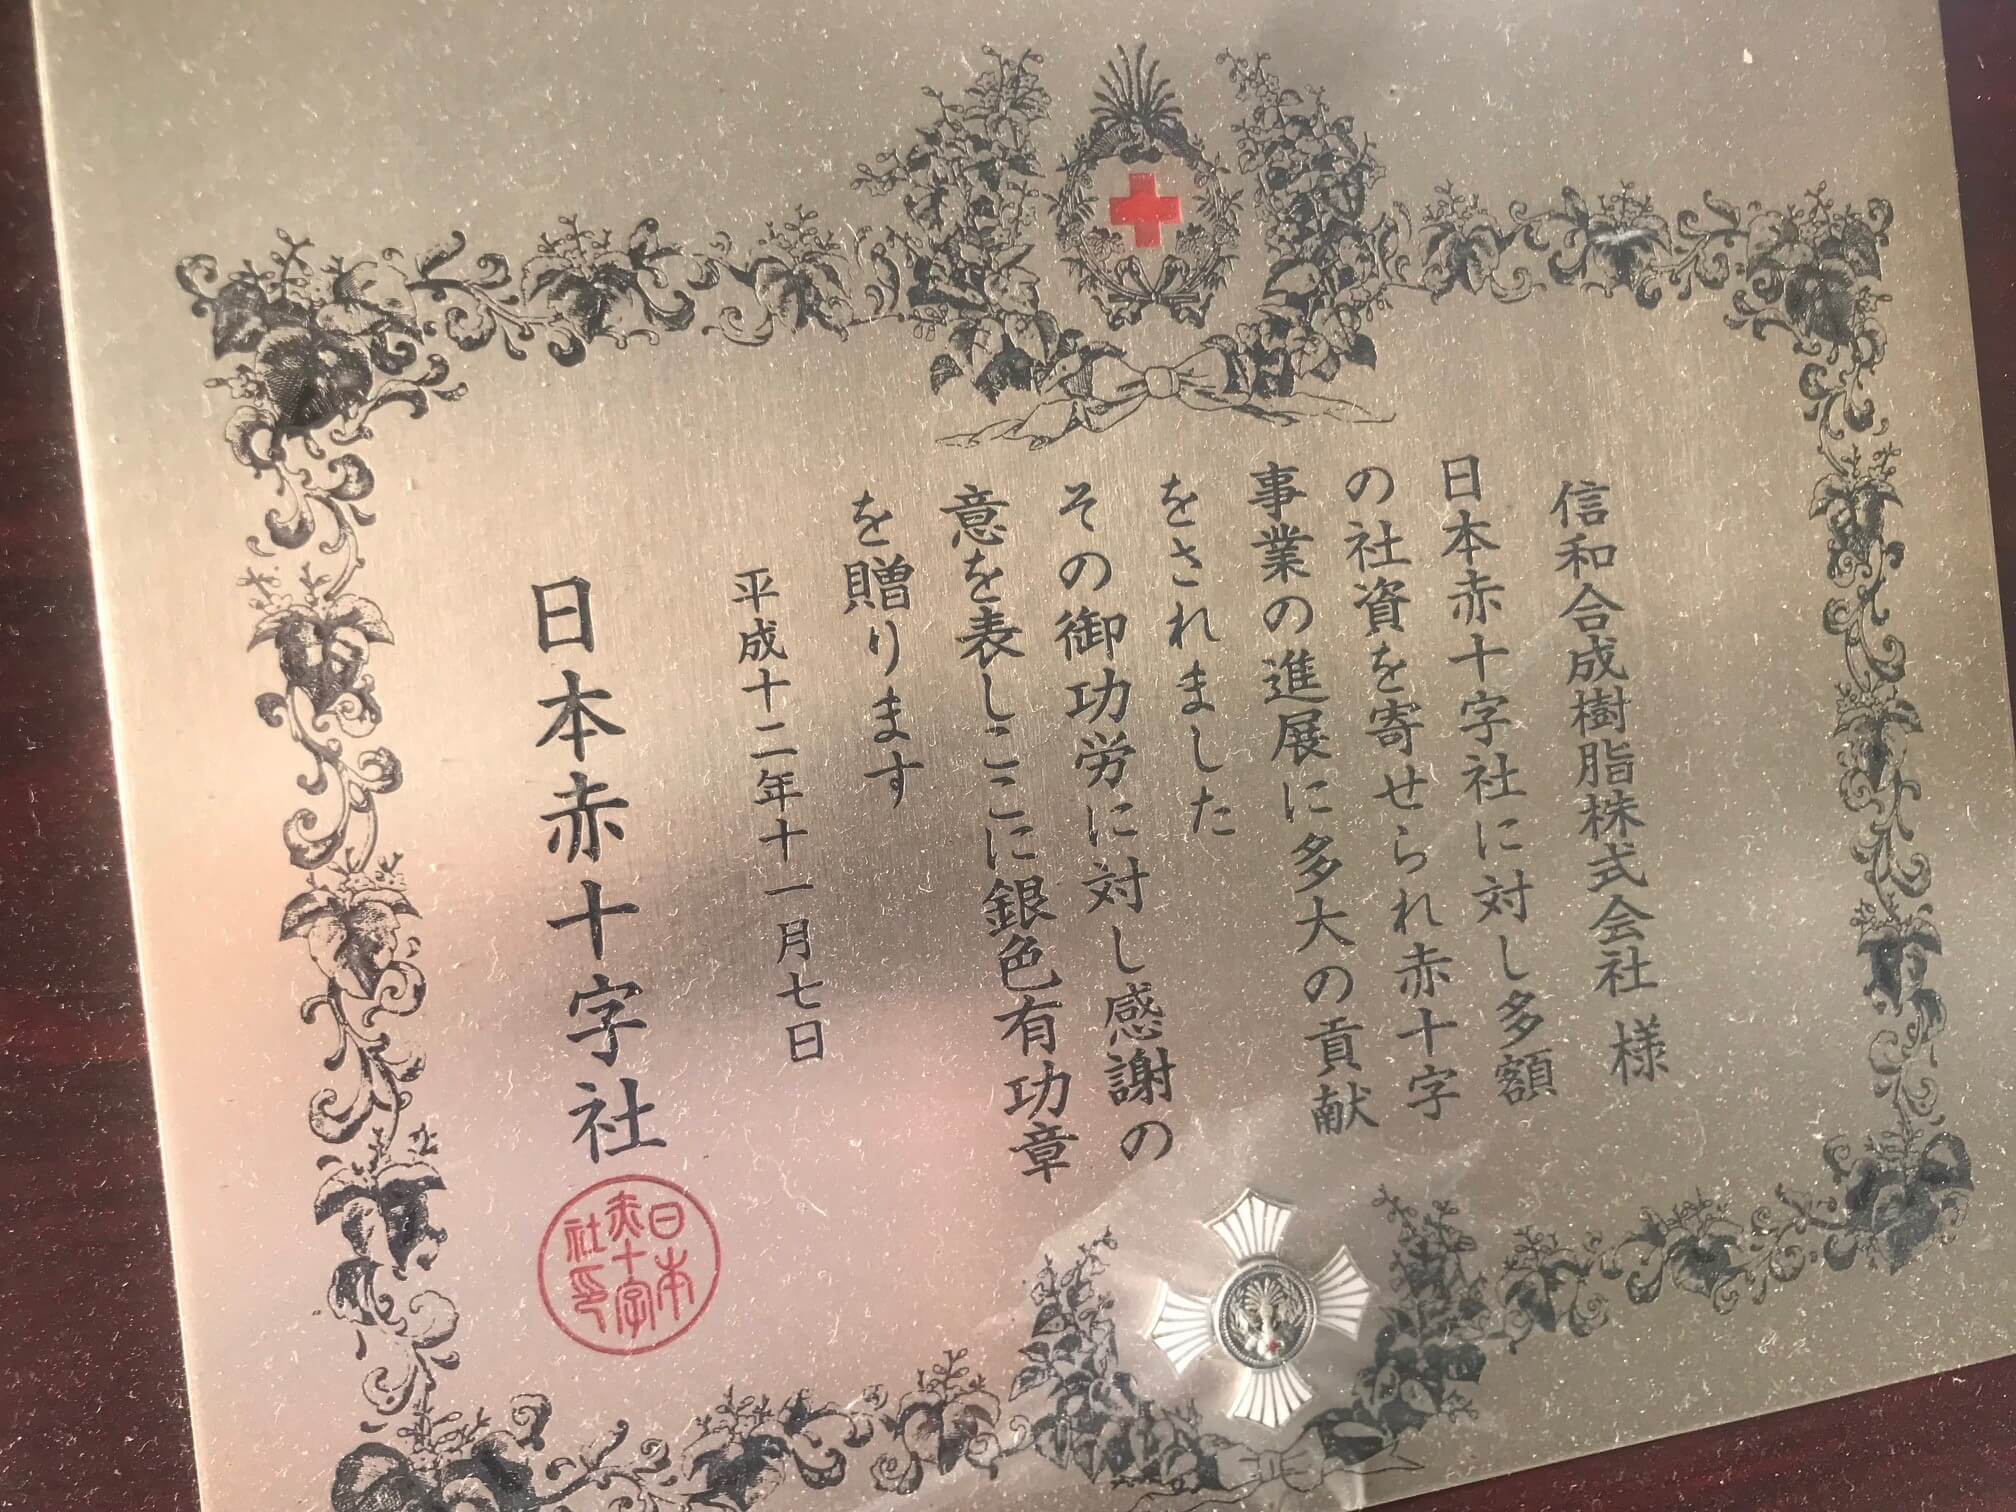 信和合成樹脂株式会社 様
日本赤十字社に対し多額
の社資を寄せられ赤十字
事業の進展に多大の貢献
をされました
その御功労に対し感謝の
意を表しここに銀色有功章
を贈ります
平成十二年十一月七日
日本赤十字社
日本
赤十字
社印